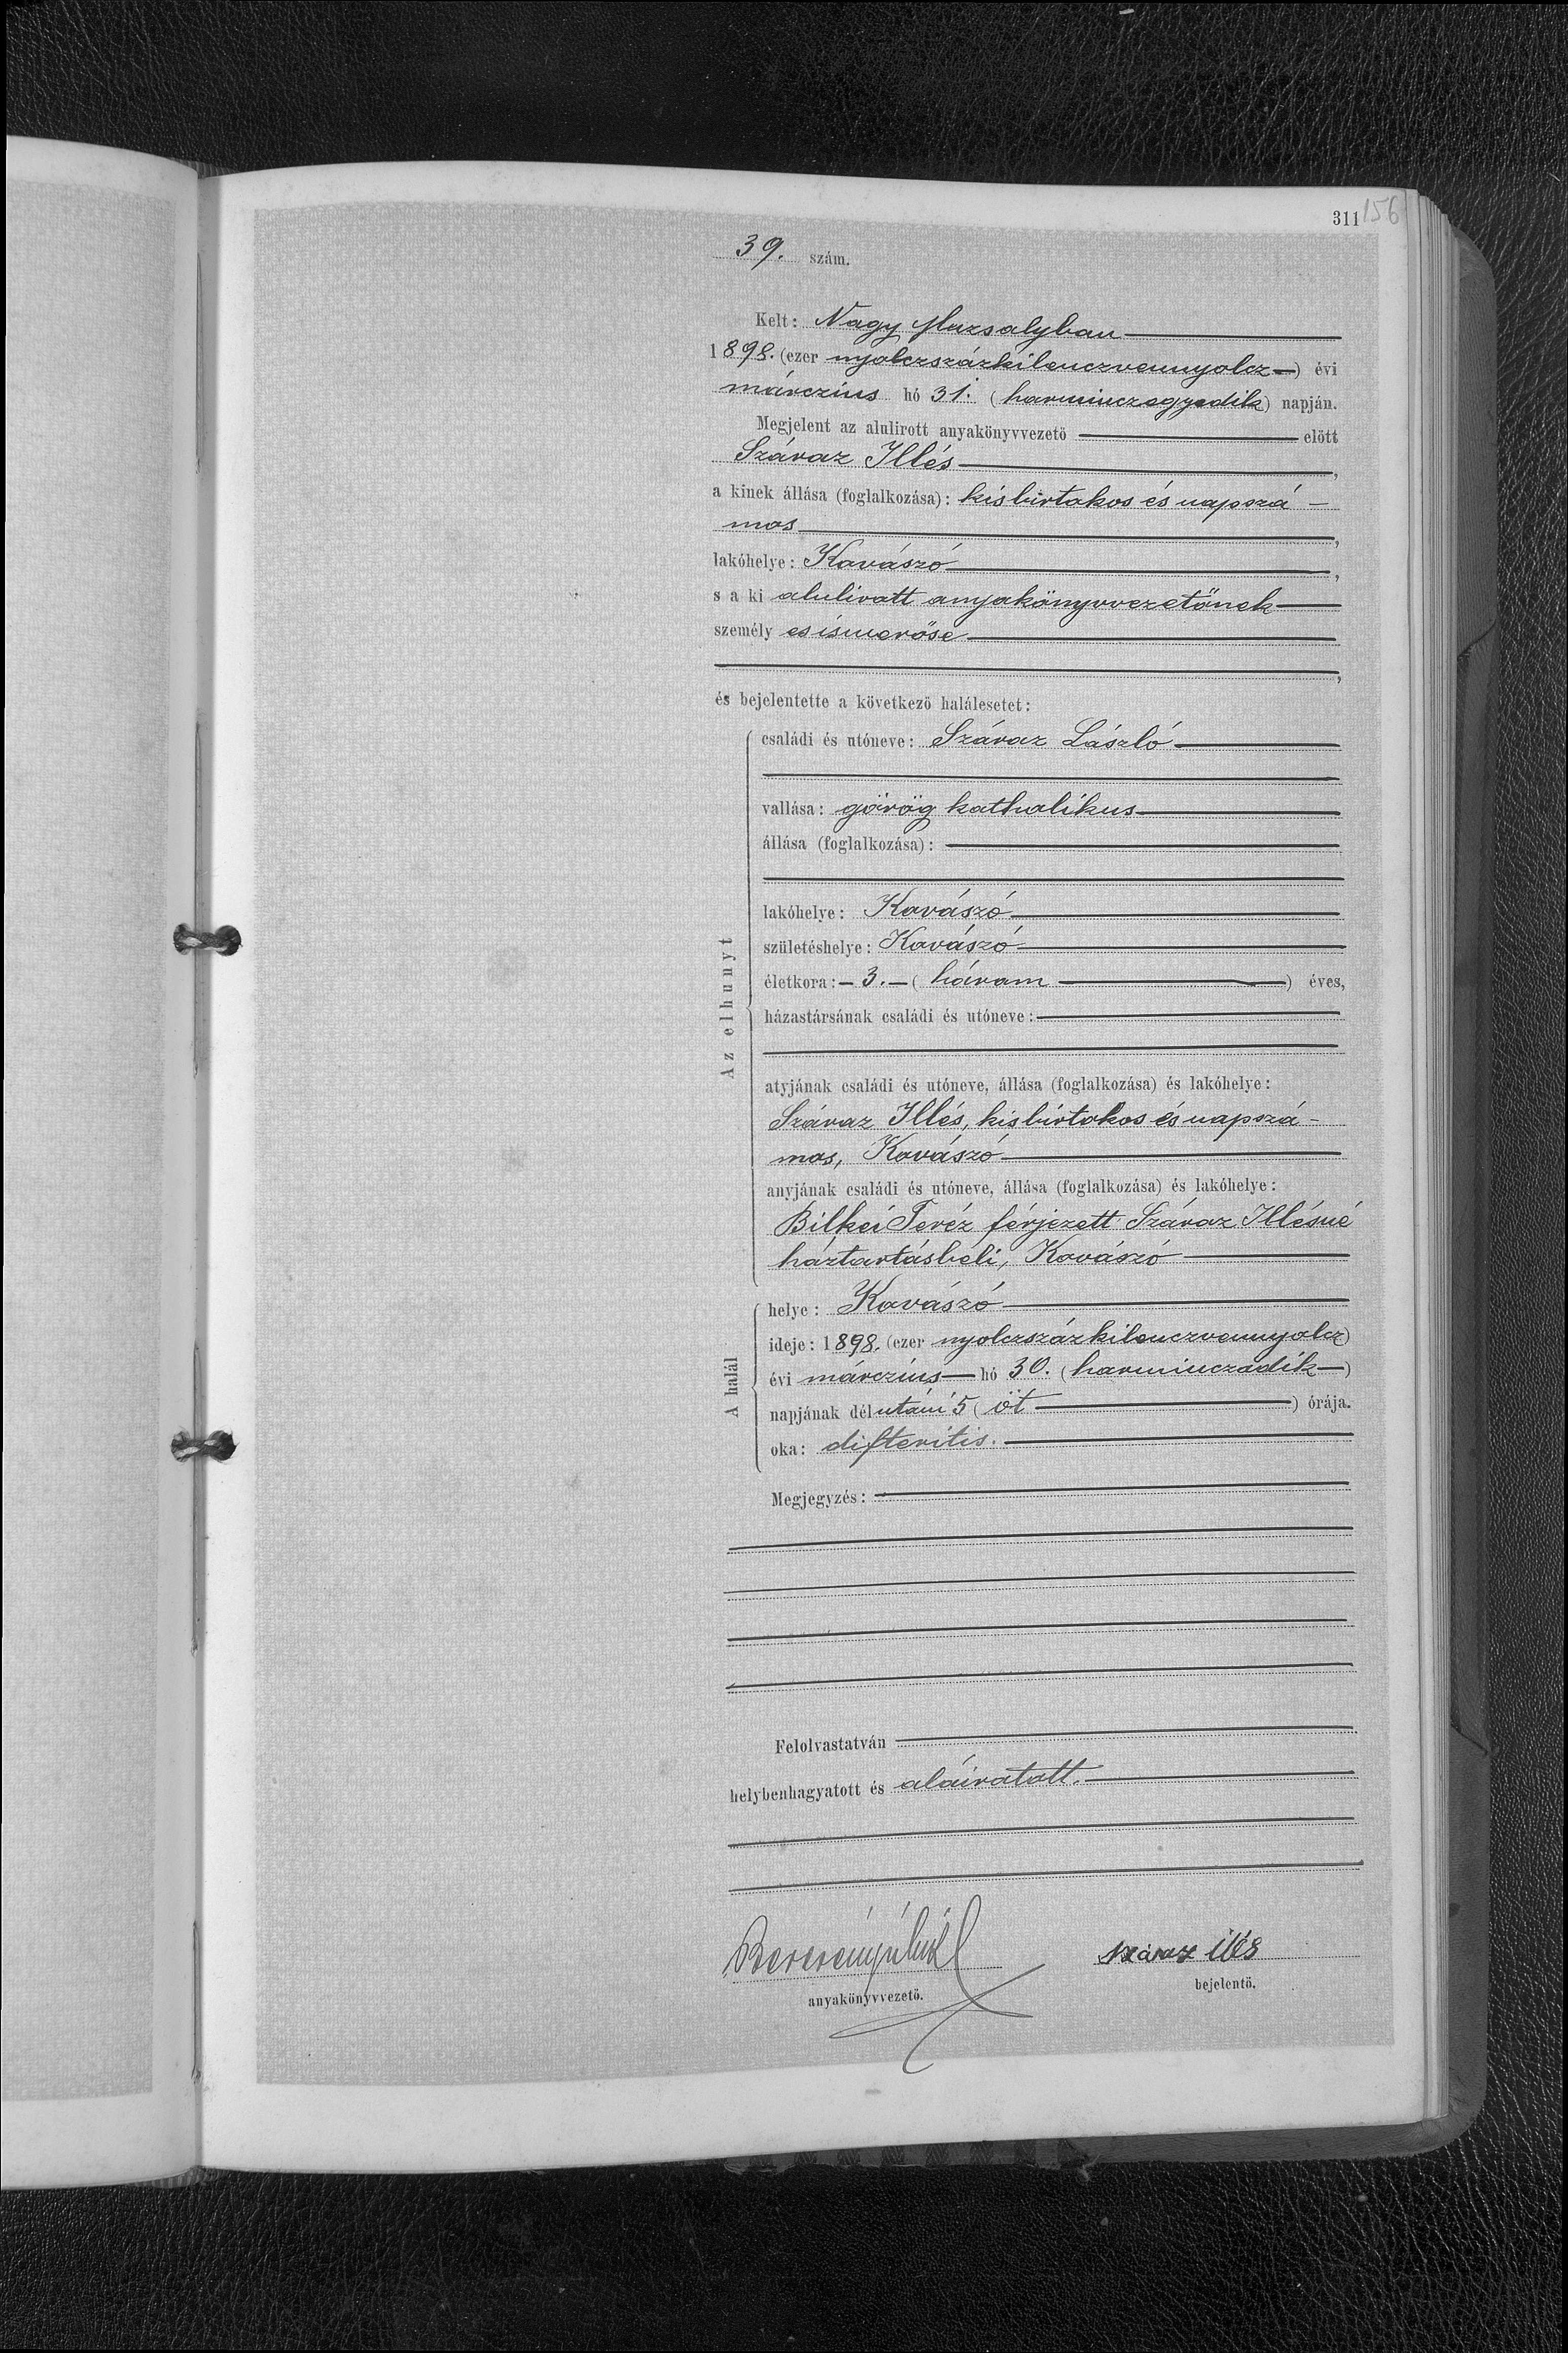 311 156
39. szám.
Kelt: Nagy Muzsalyban
1898. (ezer nyolczszázkilenczvennyolcz) évi
márczius hó 31. (harminczegyedik) napján.
Megjelent az alulirott anyakönyvvezető előtt
Száraz Illés,
a kinek állása (foglalkozása): kisbirtokos és napszá-
mos,
lakóhelye: Kovászó,
s a ki alulirott anyakönyvvezetőnek
személyes ismerőse
,
és bejelentette a következő halálesetet:
Az elhunyt
családi és utóneve: Száraz László
vallása: görög katholikus
állása (foglalkozása):
lakóhelye: Kovászó
születéshelye: Kovászó
életkora: – 3. – (három) éves,
házastársának családi és utóneve:
atyjának családi és utóneve, állása (foglalkozása) és lakóhelye:
Száraz Illés, kisbirtokos és napszá-
mos, Kovászó
anyjának családi és utóneve, állása (foglalkozása) és lakóhelye:
Bilkei Teréz férjezett Száraz Illésné
háztartásbeli, Kovászó
A halál
helye: Kovászó
ideje: 1898. (ezer nyolczszázkilenczvennyolcz)
évi márczius hó 30. (harminczadik)
napjának délutáni 5 (öt) órája.
oka: difteritis.
Megjegyzés:
Felolvastatván
helybenhagyatott és aláiratott.
száraz illés
anyakönyvvezető.
bejelentő.